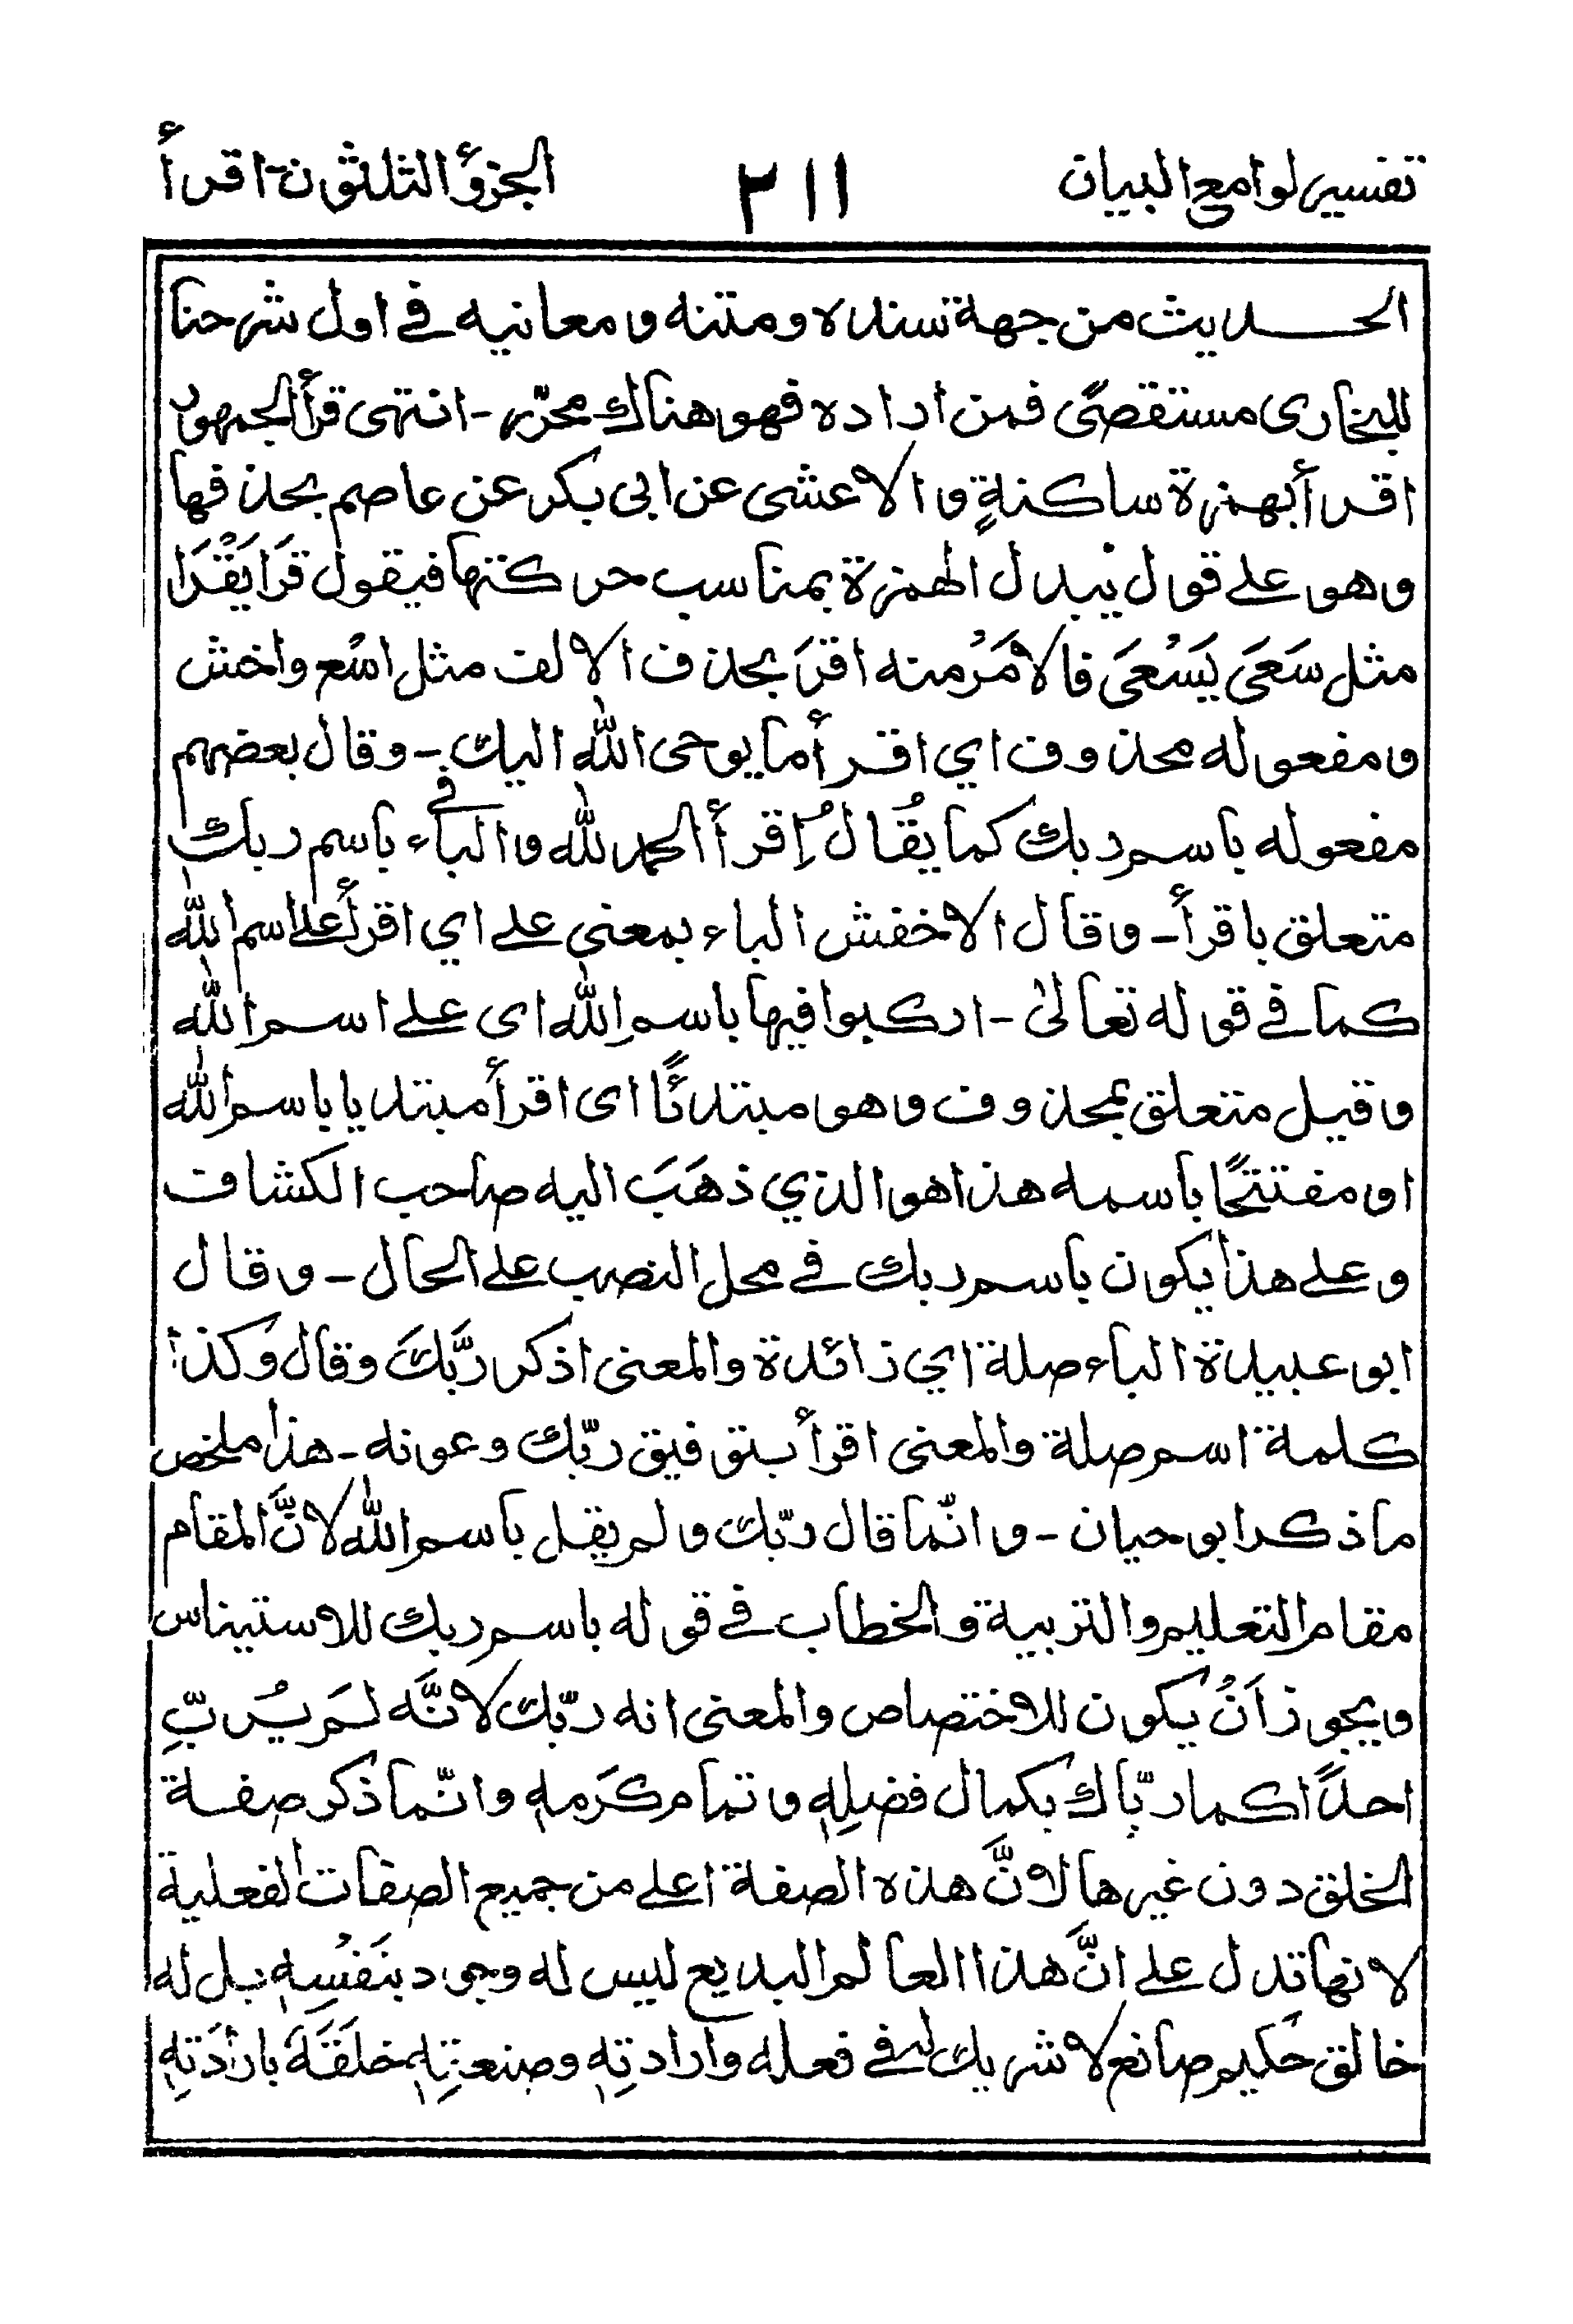 تفسير لوامع البيان ٢١١ الجزؤ الثلثون - اقرأ
الحديث من جهة سنده و متنه و معانيه في اول شرحنا
للبخارى مستقصًى فمن اراده فهو هناك محرّر - انتهى قرأ الجمهور
اقرأ بهمزة ساكنةٍ و الاعشى عن ابى بكر عن عاصم بحذفها
وهو على قول يبدل الهمزة بمناسب حركتها فيقول قَرَا يَقْرَا
مثل سَعَى يَسْعَى فالامَرُ منه اقرَ بحذف الالف مثل اسْع واخش
و مفعوله محذوف اي اقرأ ما يوحى الله اليك - وقال بعضهم
مفعوله باسم ربك كما يُقَالُ اِقرأ الحمد لله و الباء في باسم ربك
متعلق باقرأ - و قال الاخفش الباء بمعنى على اي اقرأ على اسم الله
كما في قوله تعالىٰ - اركبوا فيها باسم الله اى على اسم الله
و قيل متعلق بمحذوف و هو مبتدئًا اى اقرأ مبتديا باسم الله
او مفتتحًا باسمه هذا هو الذي ذهَبَ اليه صاحب الكشاف
و على هذا يكون باسم ربك في محل النصب على الحال - و قال
ابو عبيدة الباء صلة اي زائدة والمعنى اذكر ربَّكَ وقال وَكذا
كلمة اسم صلة والمعنى اقرأ بتوفيق ربّك وعونه - هذا ملخص
ما ذكر ابو حيان - و انّما قال ربّك و لم يقل باسم الله لانَّ المقام
مقام التعليم والتربية والخطاب في قوله باسم ربك للاستيناس
ويجوز اَنْ يكون للاختصاص والمعنى انه ربّك لانَّه لَم يُربِّ
احدًا كما ربّاك بكمال فضلِهٖ و تمام كَرَمهٖ وانّما ذكر صفة
الخلق دون غيرها لانَّ هذه الصفة اعلى من جميع الصفات الفعلية
لانها تدل على انَّ هذا العالم البديع ليس له وجود بنَفْسِهٖ بل له
خالق حَكيم صانع لاشريك له في فعله وارادتِهٖ وصنعتِهٖ خلَقَهٗ بارادَتِهٖ